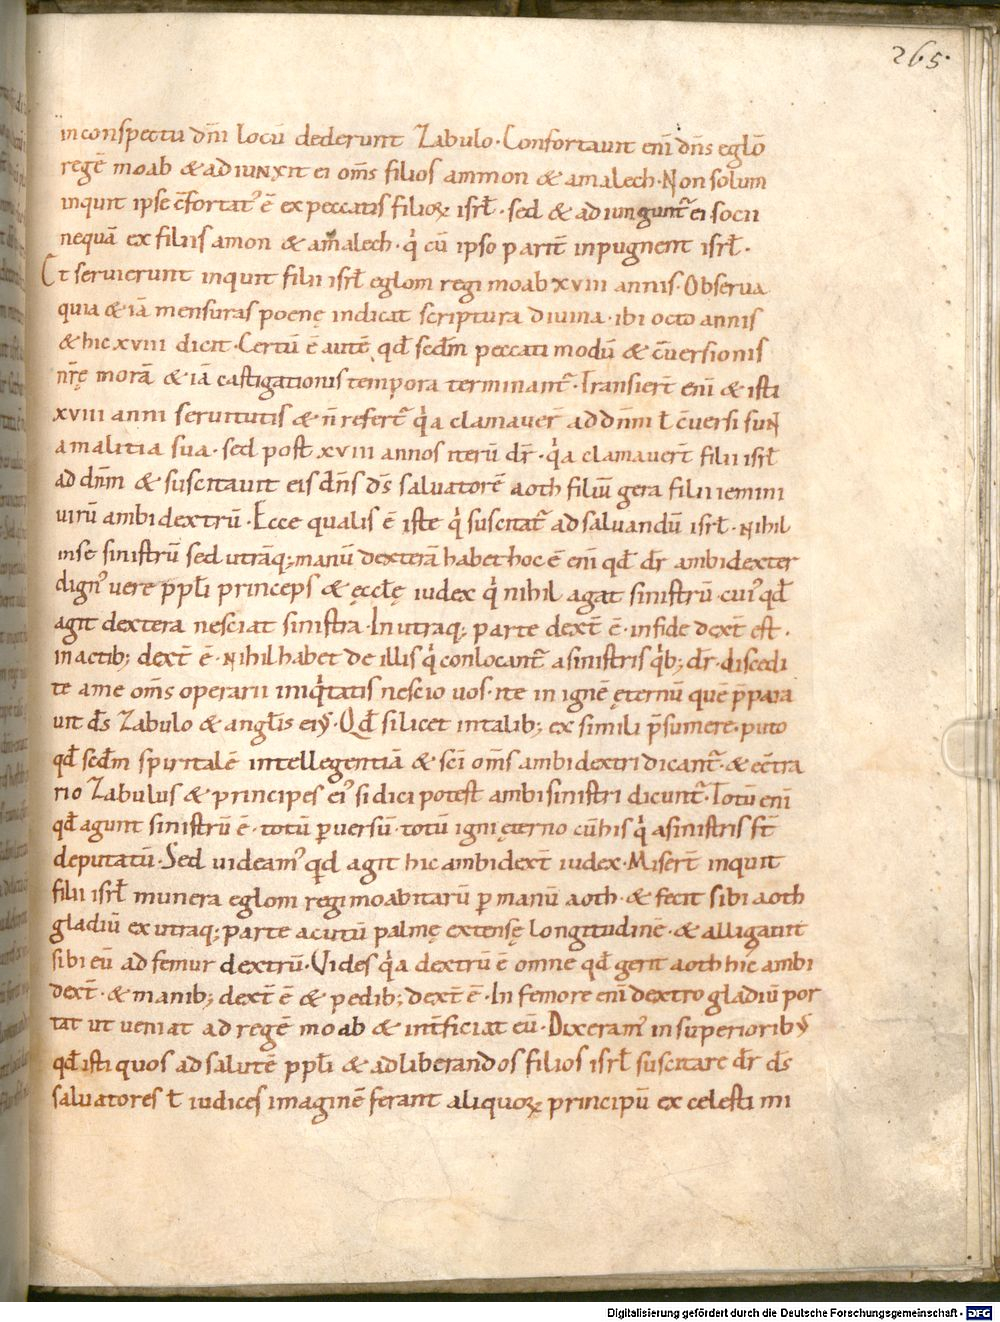 265.
in conspectu dñi locū dederunt Zabulo. Confortauit enī dñs eglō
regē moab & adiunxit ei om̄s filios ammon & amalech. Non solum
inquit ipse c̄fortatꝰ ē ex peccatis filioꝝ isrł. sed & adiungunt᷑ ei socii
nequā ex filiis amon & amalech. qͥ cū ipso parit̄ inpugnent isrł.
Et seruierunt inquit filii isrł eglom regi moab xviii annis. Obserua
quia & iā mensuras poenę indicat scriptura diuina. ibi octo annis
& hic xviii dicit. Certū ē autē qđ scđm peccati modū & c̄uersionis
nr̄ę morā & iā castigationis tempora terminant᷑. Transier̄t enī & isti
xviii anni seruitutis & n̄ refert᷑ qͥa clamauer̄ ad dñm ł c̄uersi sun
a malitia sua. sed post xviii annos iterū dr̄. qͥa clamauer̄t filii isrł
ad dñm & suscitauit eis dñs ds̄ saluatorē aoth filiū gera filii iemini
uirū ambidextrū. Ecce qualis ē iste qͥ suscitat᷑ ad saluandū isrł. nihil
in se sinistrū sed utrāq; manū dexterā habet hoc ē enī qđ dr̄ ambidexter
dignꝰ uere p̄płi princeps & ęccłę iudex qͥ nihil agat sinistrū. cuiꝰ qđ
agit dextera nesciat sinistra. In utraq; parte dext̄ ē. in fide dext̄ est.
in actib; dext̄ ē. nihil habet de illis qͥ conlocant᷑ a sinistris qͥb; dr̄. discedi
te a me om̄s operarii iniqͥtatis nescio uos. ite in ignē ęternū quē p̄para
uit ds̄ Zabulo & angłis eiꝰ. Qđ silicet in talib; ex simili p̄sumere. puto
qđ scđm spiritalē intellegentiā & sc̄i om̄s ambidextri dicant᷑. & ec̄tra
rio Zabulus & principes eiꝰ si dici potest ambisinistri dicunt᷑. Totū enī
qđ agunt sinistrū ē. totū ꝑuersū. totū igni ęterno cū his qͥ a sinistris st̄
deputatū. Sed uideamꝰ qđ agit hic ambidext̄ iudex. Miser̄t inquit
filii isrł munera eglom regi moabitarū ꝑ manū aoth. & fecit sibi aoth
gladiū ex utraq; parte acutū palmę extensę longitudinē. & alligauit
sibi eū ad femur dextrū. Uides qͥa dextrū ē omne qđ gerit aoth hic ambi
dext̄. & manib; dext̄ ē & pedib; dext̄ ē. In femore enī dextro gladiū por
tat ut ueniat ad regē moab & int̄ficiat eū. Dixeramꝰ in superioribꝰ
qđ isti quos ad salutē p̄płi & ad liberandos filios isrł suscitare dr̄ ds̄
saluatores ł iudices imaginē ferant aliquoꝝ principū ex celesti mi
Digitalisierung gefördert durch die Deutsche Forschungsgemeinschaft - DFG